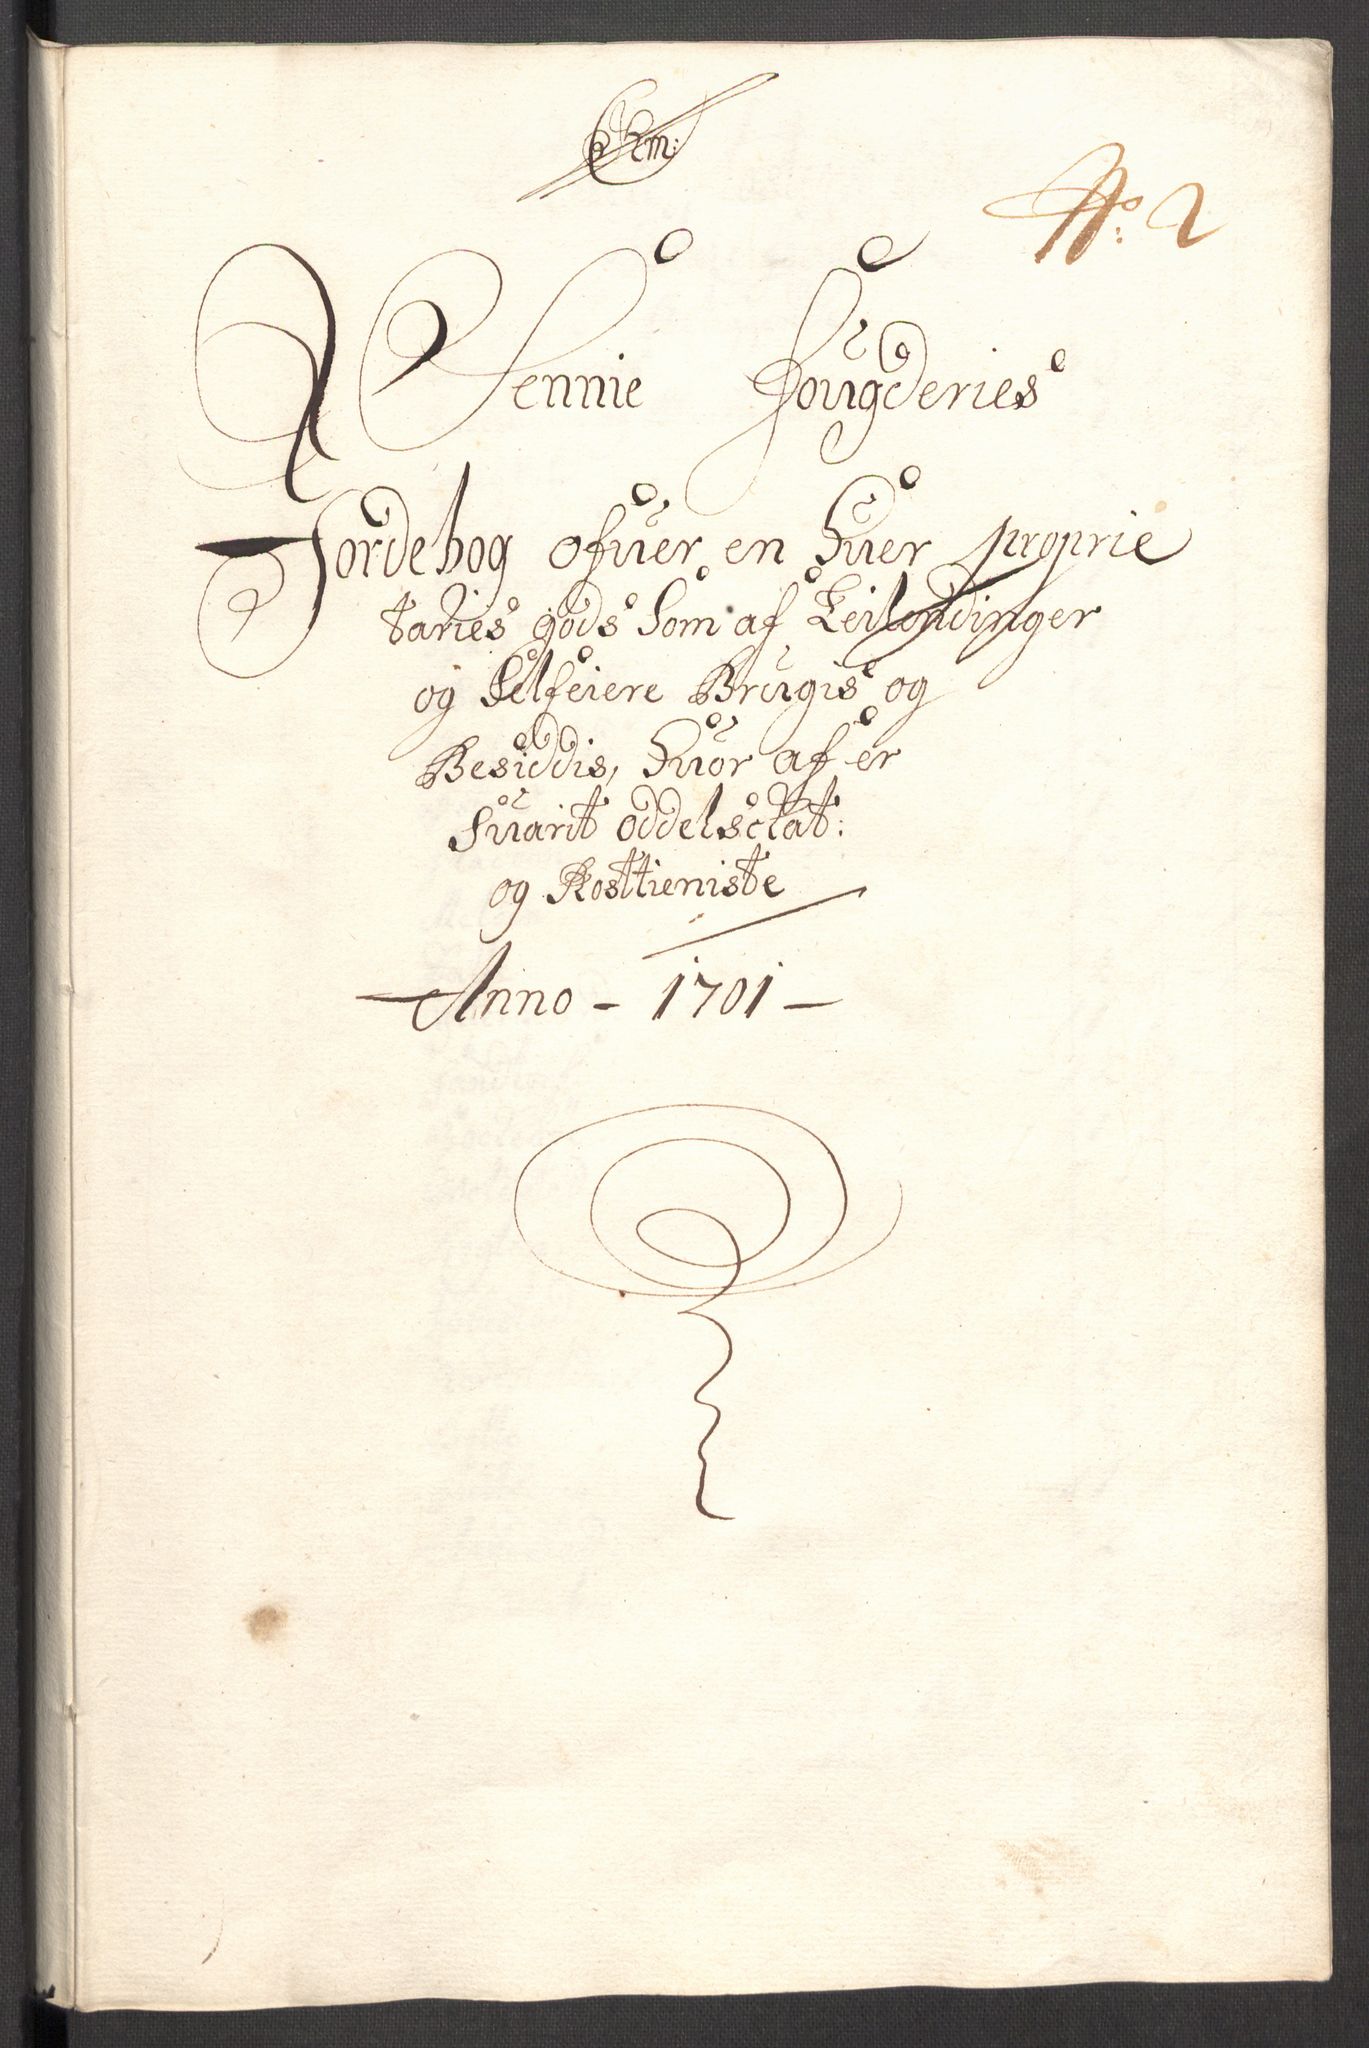 No: 2
Sennie Fougderies
Jordebog ofuer en huer proprie
taries gods Som af Leilendinger
og Selfeiere Brugis og
Besiddis, huor af er
Suarit oddelsckat:
og Rosttieniste
Anno - 1701 -